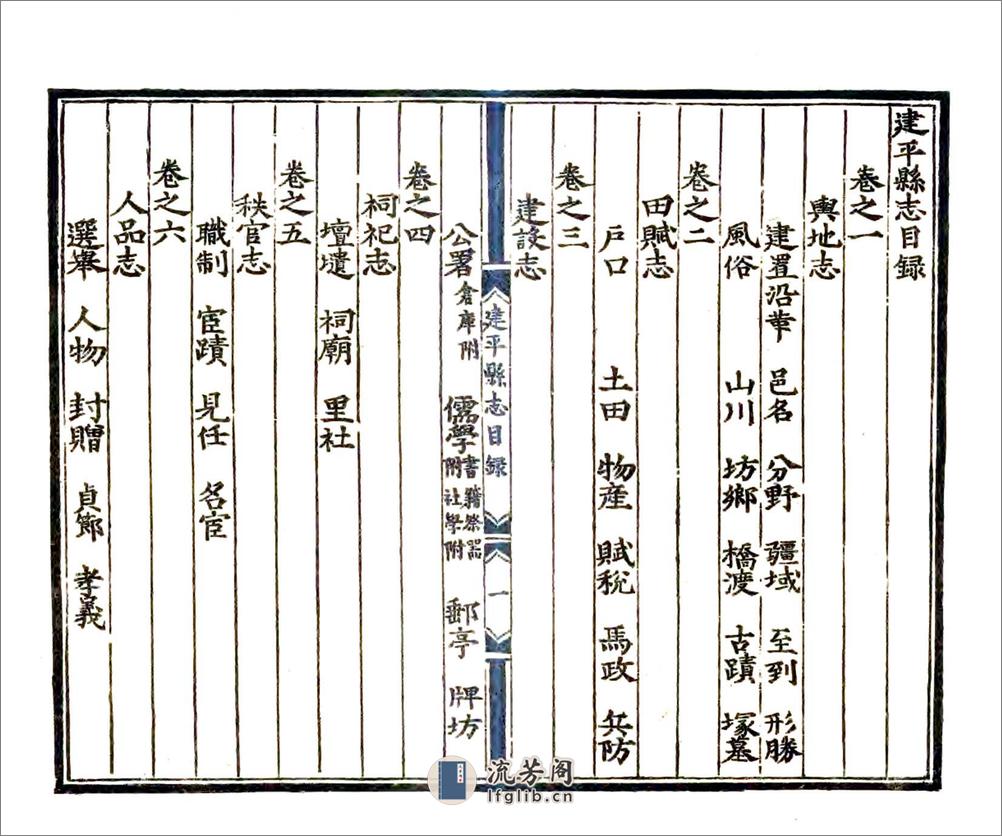 建平縣志目録
卷之一
輿地志
建置沿革 邑名 分野 疆域 至到 形勝
風俗 山川 坊鄉 橋渡 古蹟 塚墓
卷之二
田賦志
戶口 土田 物産 賦稅 馬政 兵防
卷之三
建設志
建平縣志目録 一
公署倉庫附 儒學書籍祭器附社學附 郵亭 牌坊
卷之四
祠祀志
壇壝 祠廟 里社
卷之五
秩官志
職制 宦蹟 見任 名宦
卷之六
人品志
選舉 人物 封贈 貞節 孝義
流芳阁
lfglib.cn